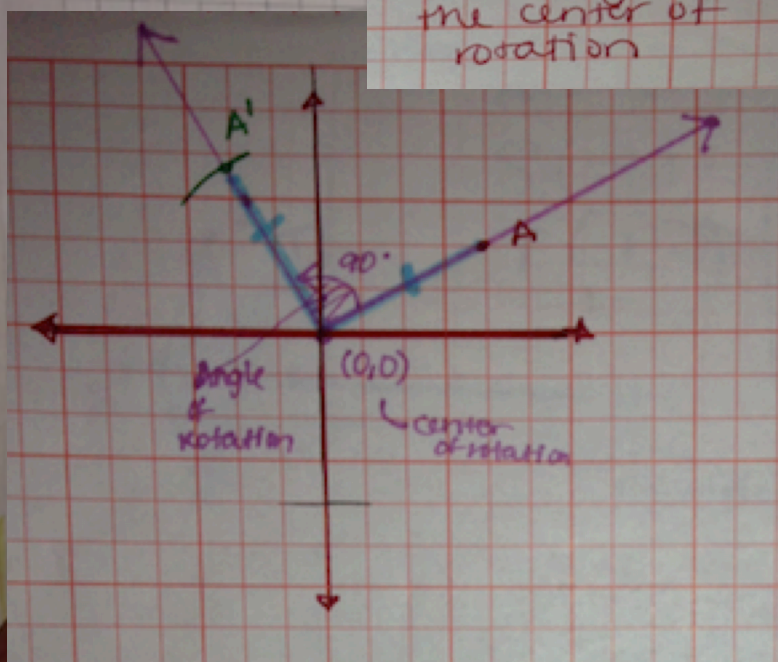 the center of
rotation
A'
A
90°
(0,0)
Angle
of
rotation
center
of rotation